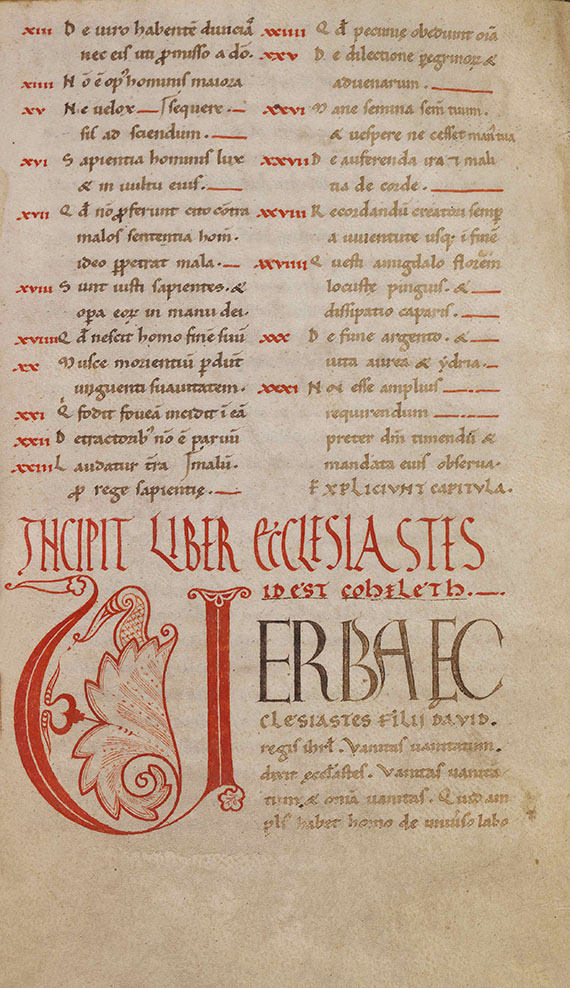 xiii D e uiro habentē diuicia᷒
nec eis uti ꝓmisso a dō.
xiiii N ō ē op᷒ hominis maiora
xv N e uelox ſequere
fil ad sciendum.
xvi S apientia hominis lux
& in uultu eius.
xvii Q đ nō ꝓferunt cito cōtra
malos sententia hom̄.
ideo ꝑpetrat mala.
xviii S unt iusti sapientes. &
opa eorꝝ in manu dei.
xviiii Q đ nescit homo finē suū
xx M usce morientiū ꝑdūt
unguenti suauitatem.
xxi Q fodit foueā incidit ī eā
xxii D etractorib᷒ nō ē paruū
xxiii L audatur tr̄a ſmalū.
ꝓ rege sapientię.
xxiiii Q đ pecunię obediunt oīa
xxv D e dilectione peregrinorꝝ &
aduenarum.
xxvi M ane semina sem̄ tuum.
& uespere ne cesset man᷒ tua
xxvii D e auferenda ira ⁊ mali
tia de corde.
xxviii R ecordandū creatori semꝑ
a iuuentute usq; ī finē
xxviiii Q uesti amigdalo florem
locustę pinguis. &
dissipatio caparis.
xxx D e fune argento. &
uita aurea & ydria.
xxxi N on esse amplius
requirendum
preter dm̄ timendū &
mandata eius obserua.
EXPLICIUNT CAPITULA.
INCIPIT LIBER ECCLESIASTES
ID EST COHELETH.
UERBA EC
CLESIASTES FILII DAVID.
regis ihrl̄. Vanitas uanitatum.
dixit eccl̄astes. Vanitas uanita
tum & omīa uanitas. Quid am
pli᷒ habet homo de uniuerso labo